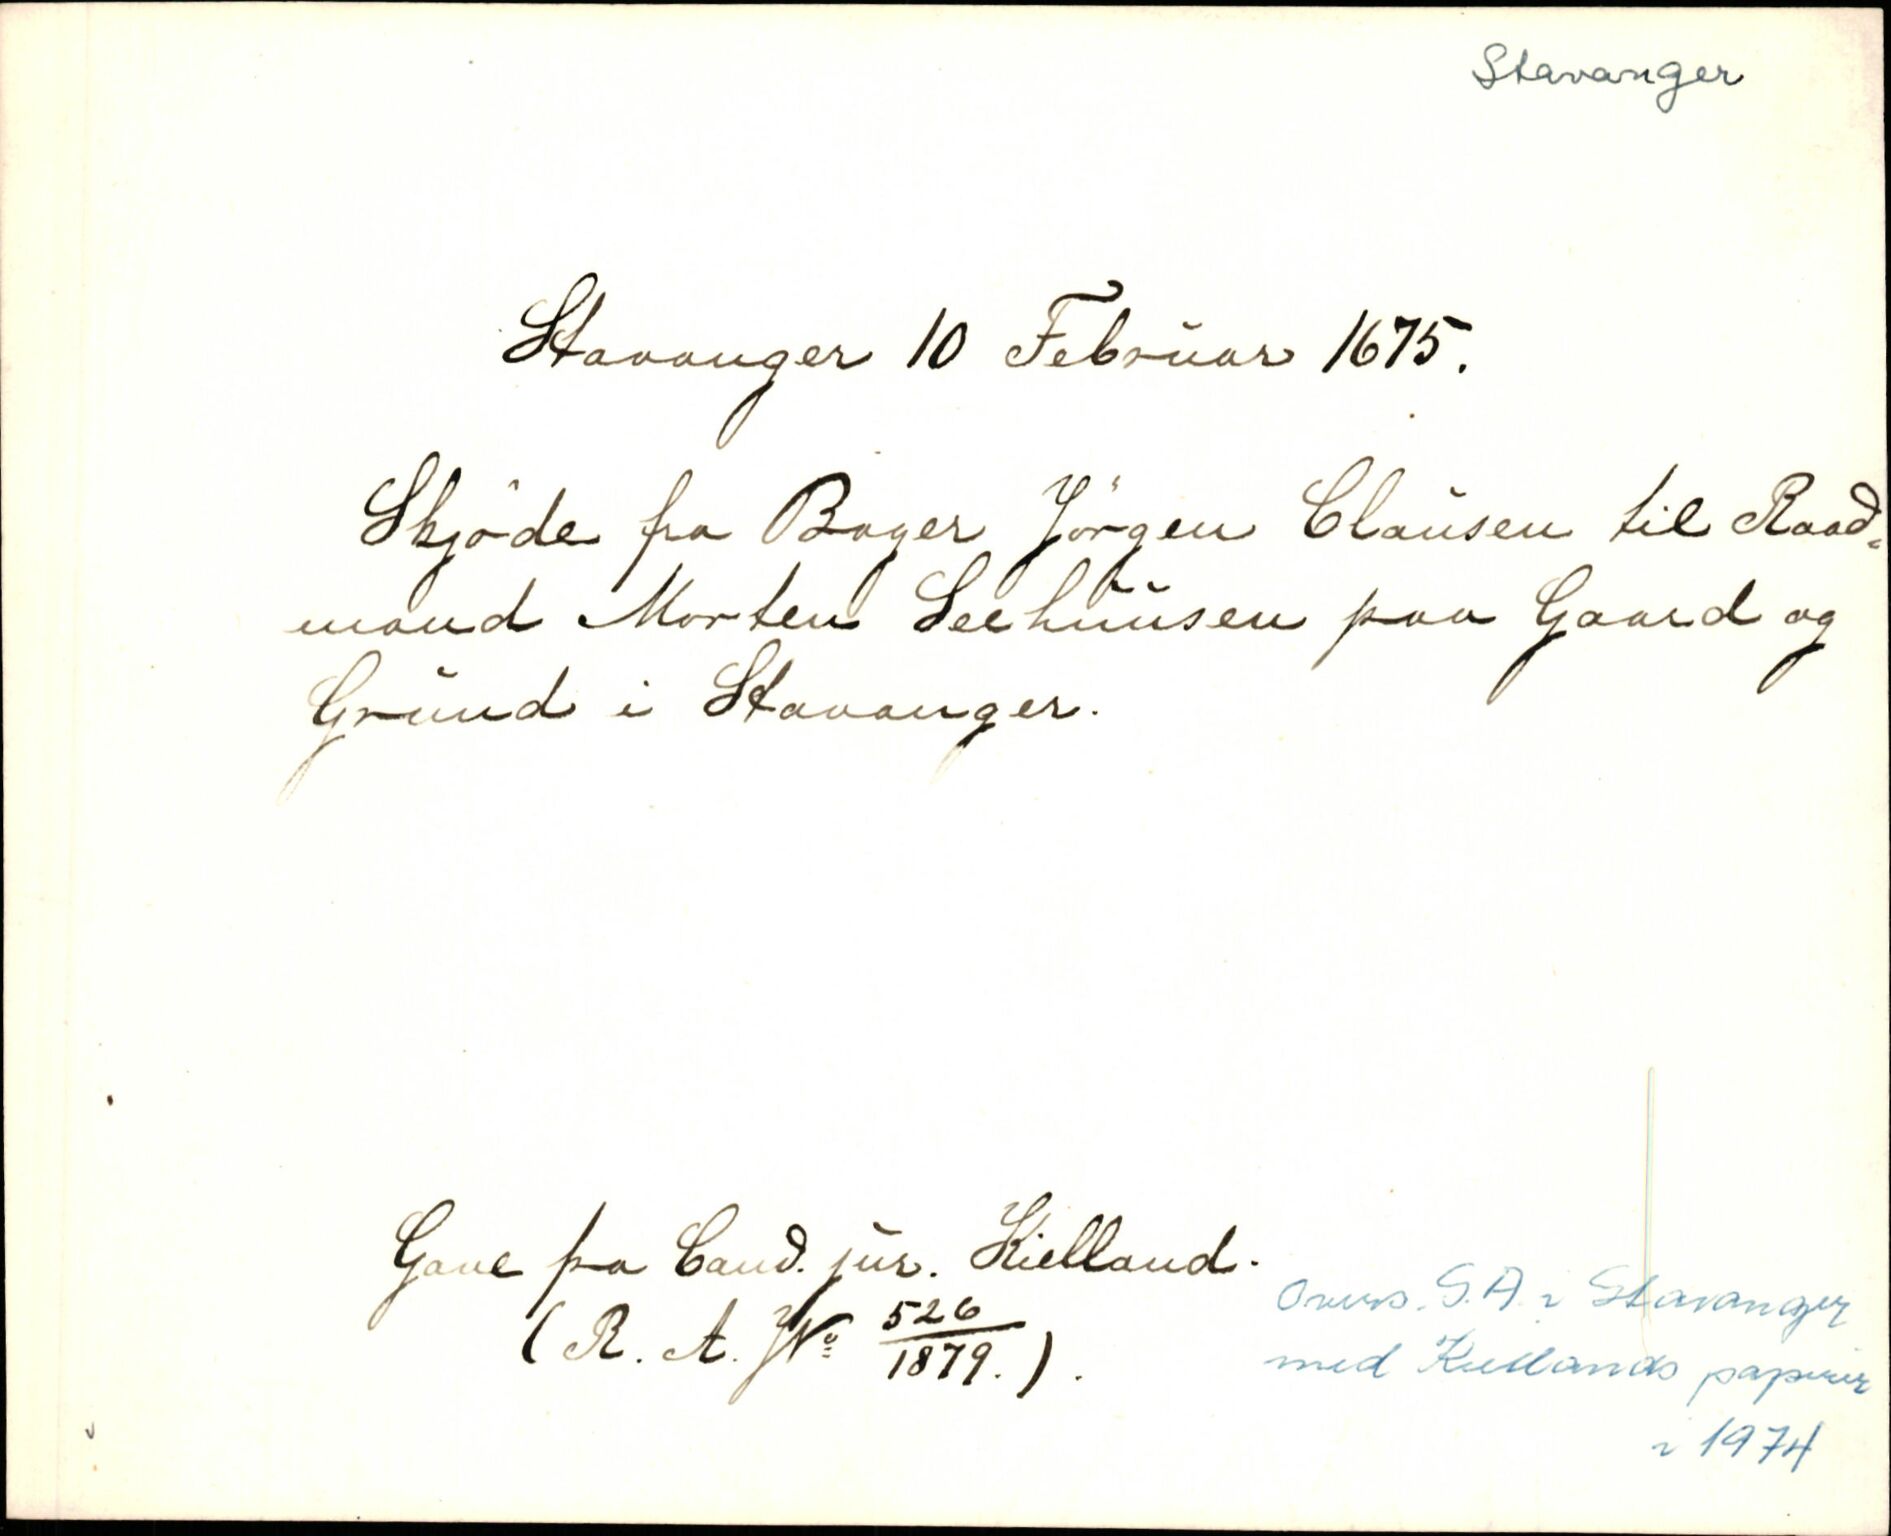 Stavanger
Stavanger 10 Februar 1675.
Skjöde fra Bager Jörgen Clausen til Raad-
mand Morten Seehuusen paa Gaard og
Grund i Stavanger.
Gave fra Cand. jur. Kielland.
(R. A. JNo 526/1879.).
Overs. S.A. i Stavanger
med Kiellands papirer
i 1974